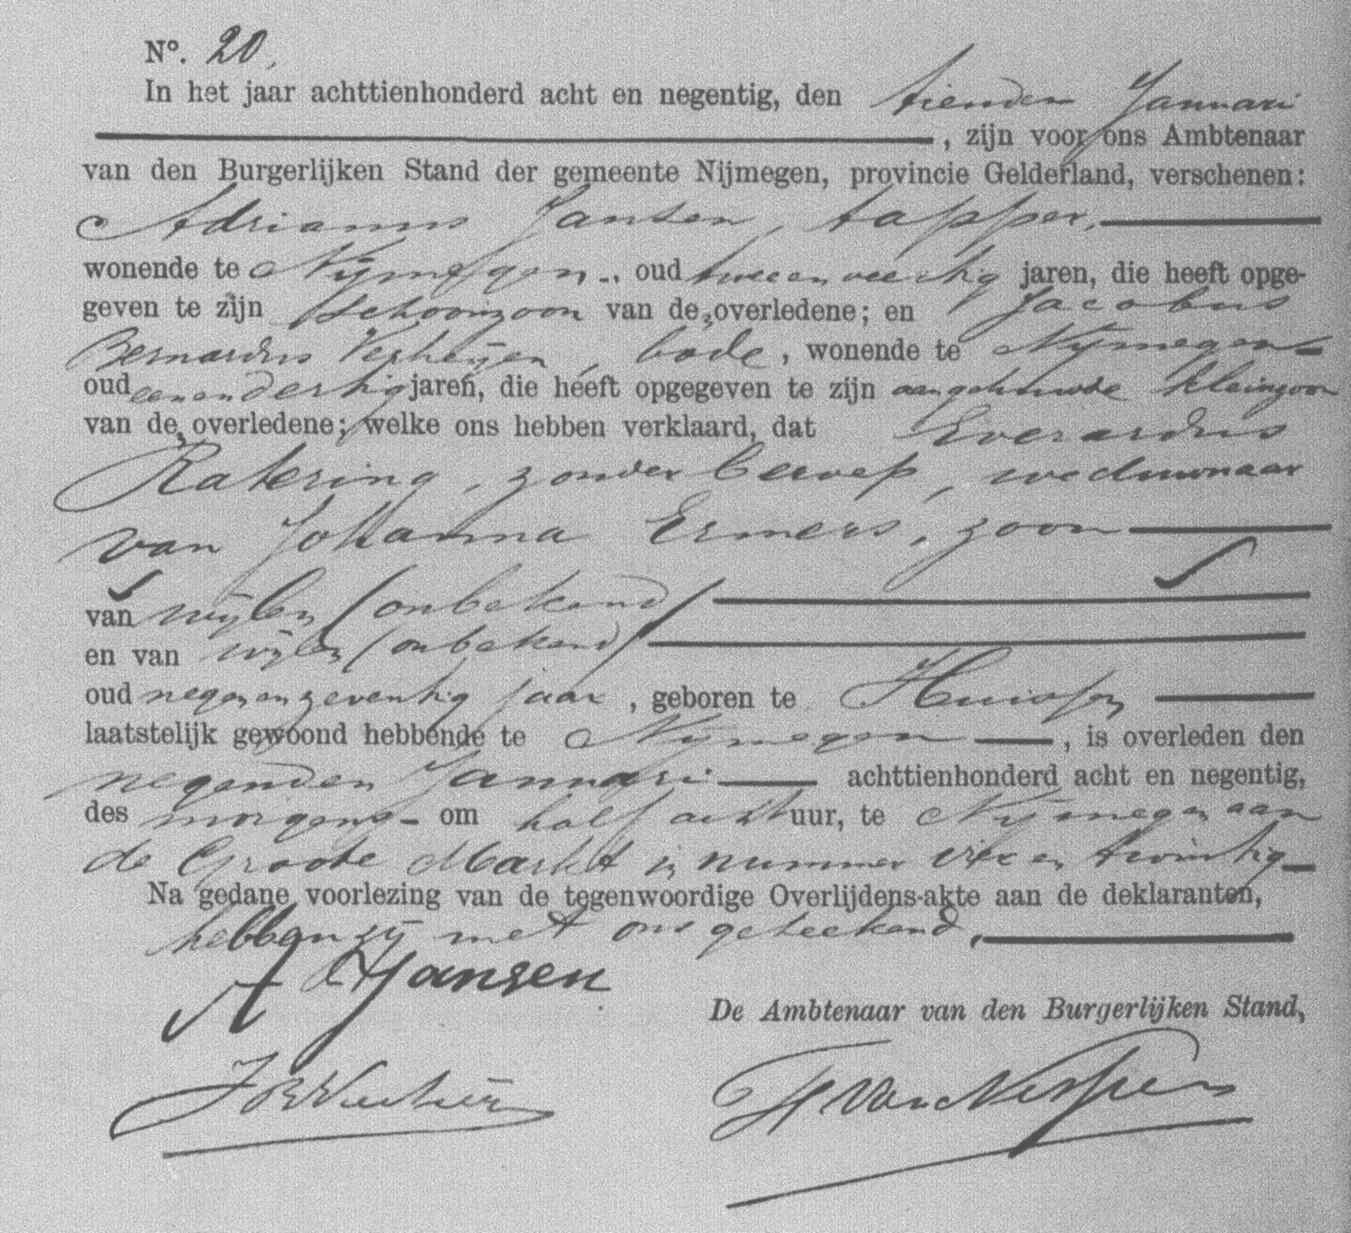 Nº. 20.
In het jaar achttienhonderd acht en negentig, den tienden Januari
, zijn voor ons Ambtenaar
van den Burgerlijken Stand der gemeente Nijmegen, provincie Gelderland, verschenen:
Adrianus Jansen, tapper,
wonende te Nijmegen, oud twee en veertig jaren, die heeft opge-
geven te zijn schoonzoon van de overledene; en Jacobus
Bernardus Verheijen, bode, wonende te Nijmegen
oud een en dertig jaren, die heeft opgegeven te zijn aangehuwde kleinzoon
van de overledene; welke ons hebben verklaard, dat Everardus
Ratering, zonder beroep, weduwnaar
van Johanna Ermers, zoon
van wijlen (onbekend)
en van wijlen (onbekend)
oud negen en zeventig jaar, geboren te Huissen
laatstelijk gewoond hebbende te Nijmegen, is overleden den
negenden Januari achttienhonderd acht en negentig,
des morgens om half acht uur, te Nijmegen aan
de Groote Markt in nummer vier en twintig
Na gedane voorlezing van de tegenwoordige Overlijdens-akte aan de deklaranten,
hebben zij met ons geteekend.
A Jansen
De Ambtenaar van den Burgerlijken Stand,